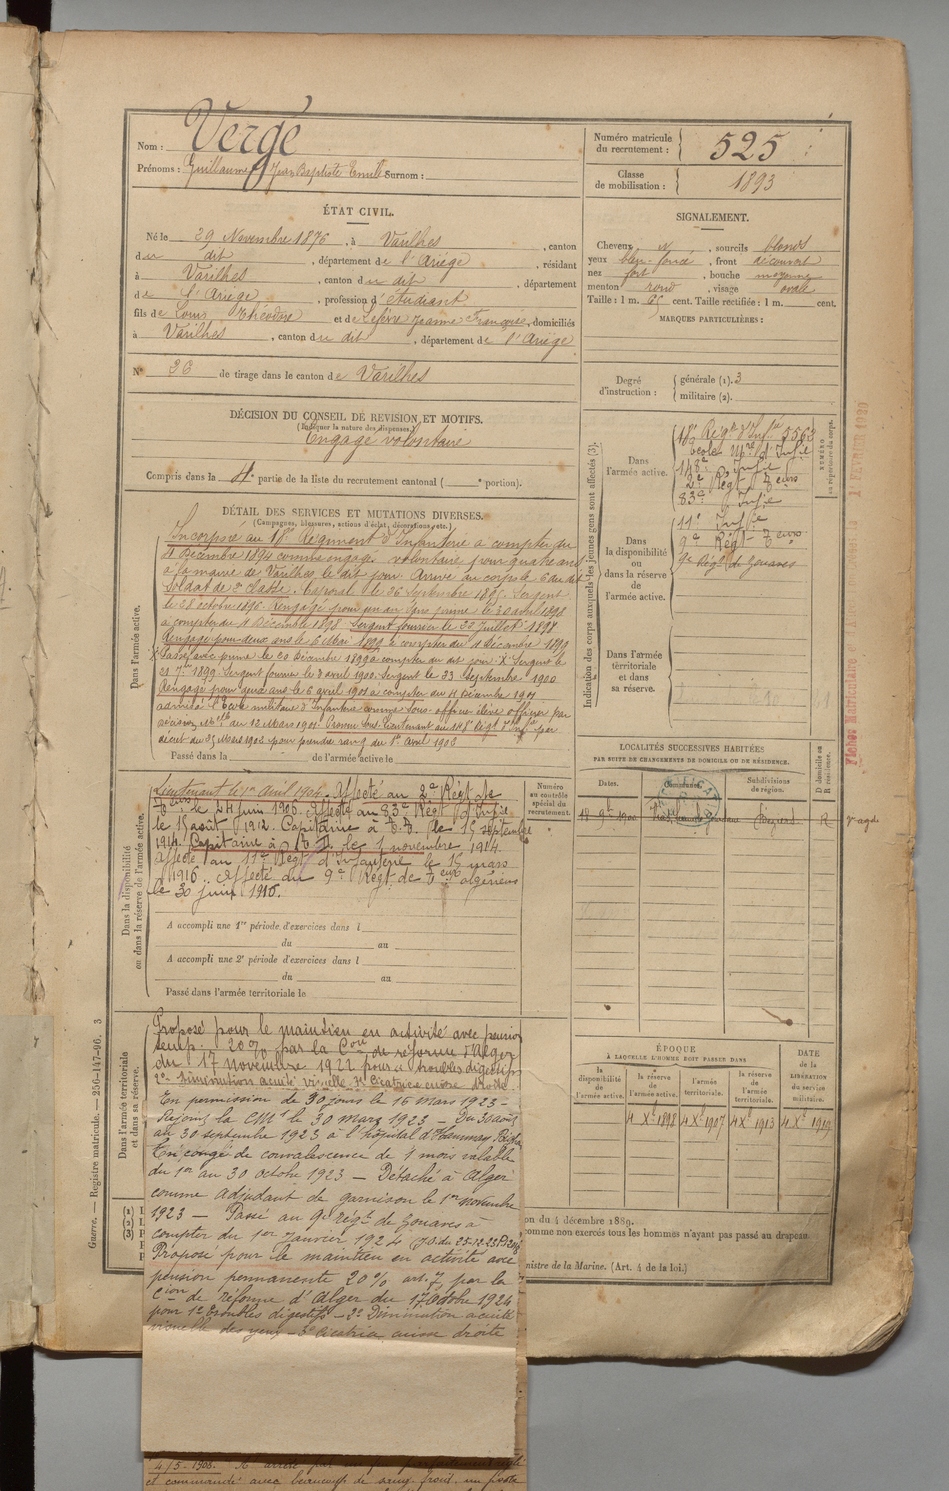 Nom : Vergé
Prénoms : Guillaume Jean Baptiste Emile Surnom :
Numéro matricule du recrutement : 525
Classe de mobilisation : 1893
ÉTAT CIVIL.
Né le 29 Novembre 1876, à Varilhes, canton
du dit, département de l'Ariège, résidant
à Varilhes, canton du dit, département
de l'Ariège, profession d'étudiant
fils de Louis Théodore et de Lefèvre Jeanne Françoise, domiciliés
à Varilhes, canton du dit, département de l'Ariège
N° 36 de tirage dans le canton de Varilhes
SIGNALEMENT.
Cheveux, sourcils blonds
yeux bleu foncé, front découvert
nez fort, bouche moyenne
menton rond, visage ovale
Taille : 1 m. 65 cent. Taille rectifiée : 1 m. cent.
MARQUES PARTICULIÈRES :
Degré d'instruction : générale (1). 3
militaire (2).
DÉCISION DU CONSEIL DE REVISION ET MOTIFS.
(Indiquer la nature des dispenses.)
Engagé volontaire
Compris dans la 4e partie de la liste du recrutement cantonal ( e portion).
DÉTAIL DES SERVICES ET MUTATIONS DIVERSES.
(Campagnes, blessures, actions d'éclat, décorations, etc.)
Dans l'armée active.
Incorporé au Régiment d'Infanterie à compter du
11 Décembre 1894 comme engagé volontaire pour quatre ans
à la mairie de Varilhes le dit jour. Arrivé au corps le 6 du dit
Soldat de 2e classe. Caporal le 26 Septembre 1895. Sergent
le 28 octobre 1896. Rengagé pour un an sans prime le 30 avril 1898
à compter du 11 Décembre 1898. Sergent fourrier le 22 Juillet 1898
Rengagé pour deux ans le 6 Mai 1899 à compter du 11 Décembre 1899
Passé avec prime le 20 Décembre 1899 à compter du dit jour. Sergent le
1899. Sergent fourrier le 3 avril 1900. Sergent le 23 Septembre 1900
Rengagé pour deux ans le 6 avril 1901 à compter du 11 Décembre 1901
admis à l'École militaire d'Infanterie comme sous-officier élève officier par
décision Mlle du 12 Mars 1901. Promu Sous-Lieutenant au 148e Régt d'Infie par
décret du 25 Mars 1902 pour prendre rang du 1er Avril 1902
Passé dans la de l'armée active le
Dans la disponibilité ou dans la réserve de l'armée active.
Lieutenant le 1er Avril 1904. Affecté au 2e Régt de
Zeurs le 24 Juin 1906. Affecté au 83e Régt d'Infie
le 15 août 1912. Capitaine à T.T. le 15 septembre
1914. Capitaine à T.D. le 1 novembre 1914.
Affecté au 11e Régt d'Infanterie le 15 mars
1916. Affecté au 9e Régt de Zeurs algériens
le 30 juin 1916.
A accompli une 1re période d'exercices dans l
du au
A accompli une 2e période d'exercices dans l
du au
Passé dans l'armée territoriale le
Numéro au contrôle spécial du recrutement.
Dans l'armée territoriale et dans sa réserve.
Proposé pour le maintien en activité avec pension
temp. 20% par la Con de réforme d'Alger
du 17 novembre 1922 pour 1° troubles digestifs
2° Diminution acuité visuelle 3° Cicatrice cuisse droite
En permission de 30 jours le 16 Mars 1923 -
Rejoint la Cie le 30 mars 1923 - Du 30 août
au 30 septembre 1923 à l'hôpital
En congé de convalescence de 1 mois valable
du 1er au 30 octobre 1923 - Détaché à Alger
comme adjudant de garnison le 1er novembre
1923 - Passé au 9e régt de Zouaves à
compter du 1er Janvier 1924 J.O. du 25-12-23
Proposé pour le maintien en activité avec
pension permanente 20% art. 7 par la
Cion de réforme d'Alger du 17 Octobre 1924
pour 1° troubles digestifs - 2° Diminution acuité
visuelle des yeux - 3° cicatrice cuisse droite
4/5-1906.
et commandé avec beaucoup de sang froid un poste
Indication des corps auxquels les jeunes gens sont affectés (3).
NUMÉRO au répertoire du corps.
Dans l'armée active.
Régt d'Infie 3563
École Mre d'Infie
148e Infie
2e Régt Zeurs
83e Infie
Dans la disponibilité ou dans la réserve de l'armée active.
11e Infie
9e Régt Zeurs
9e Régt de Zouaves
Dans l'armée territoriale et dans sa réserve.
LOCALITÉS SUCCESSIVES HABITÉES
PAR SUITE DE CHANGEMENTS DE DOMICILE OU DE RÉSIDENCE.
Dates. Communes. Subdivisions de région. D domicile ou R résidence.
1900 Béziers R
ÉPOQUE
À LAQUELLE L'HOMME DOIT PASSER DANS
la disponibilité de l'armée active. la réserve de l'armée active. l'armée territoriale. la réserve de l'armée territoriale.
DATE de la LIBÉRATION du service militaire.
4 Xe 1898 4 Xe 1907 4 Xe 1913 4 Xe 1919
on du 4 décembre 1889.
comme non exercés tous les hommes n'ayant pas passé au drapeau
nistre de la Marine. (Art. 4 de la loi.)
Guerre. — Registre matricule. — 256-147-96. 3